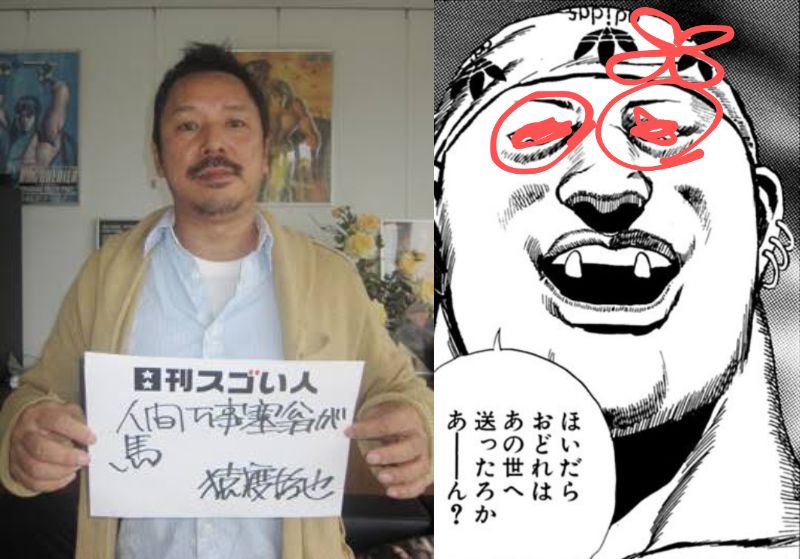 日刊スゴい人
人間万事塞翁が
馬
猿渡哲也
adidas
ほいだら
おどれは
あの世へ
送ったろか
あーん？